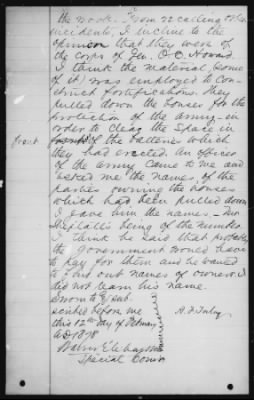 the work. From recalling other
incidents, I incline to the
opinion that they were of
the corps of Gen. O. O. Howard.
I think the material (some
of it) was employed to con-
struct fortifications. They
pulled down the houses for the
protection of the army - in
order to clear the space in
front of the batteries which
they had erected. An officer
of the army came to me and
asked me the names of the
parties owning the houses
which had been pulled down
I gave him the names -
being of the number
I think he said that probably
the Government would have
to pay for them and he wanted
to find out names of owners. I
did not learn his name.
Sworn to & sub-
scribed before me
this 12th day of February
AD 1878
Special Comr